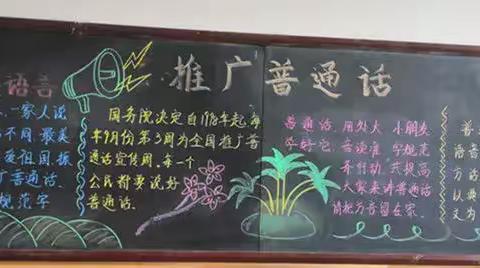 推广普通话
语言
一家人说
不同，最美
爱祖国振
普通话
规范字
国务院决定自1998年起，每
年9月份第3周为全国推广普
通话宣传周，每一个
公民都要说好
普通话.
普通话，用处大，小朋友
学好它，音读准，字规范
齐行动，共提高
大家来讲普通话
请把方音留在家.
普
语音
方话
以典
文为